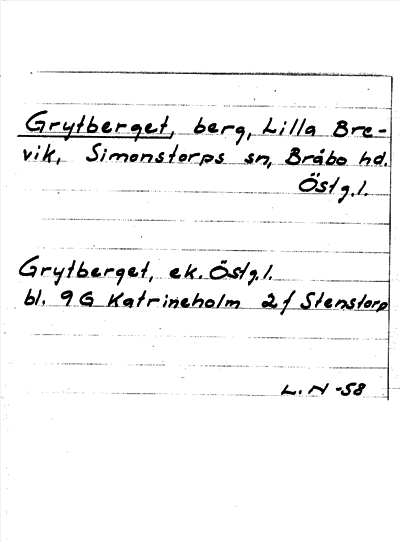 Grytberget, berg, Lilla Bre-
vik, Simonstorps sn, Bråbo hd.
Östg.l.
Grytberget, ek. Östg.l.
bl. 9G Katrineholm 2f Stenstorp
L.N -58